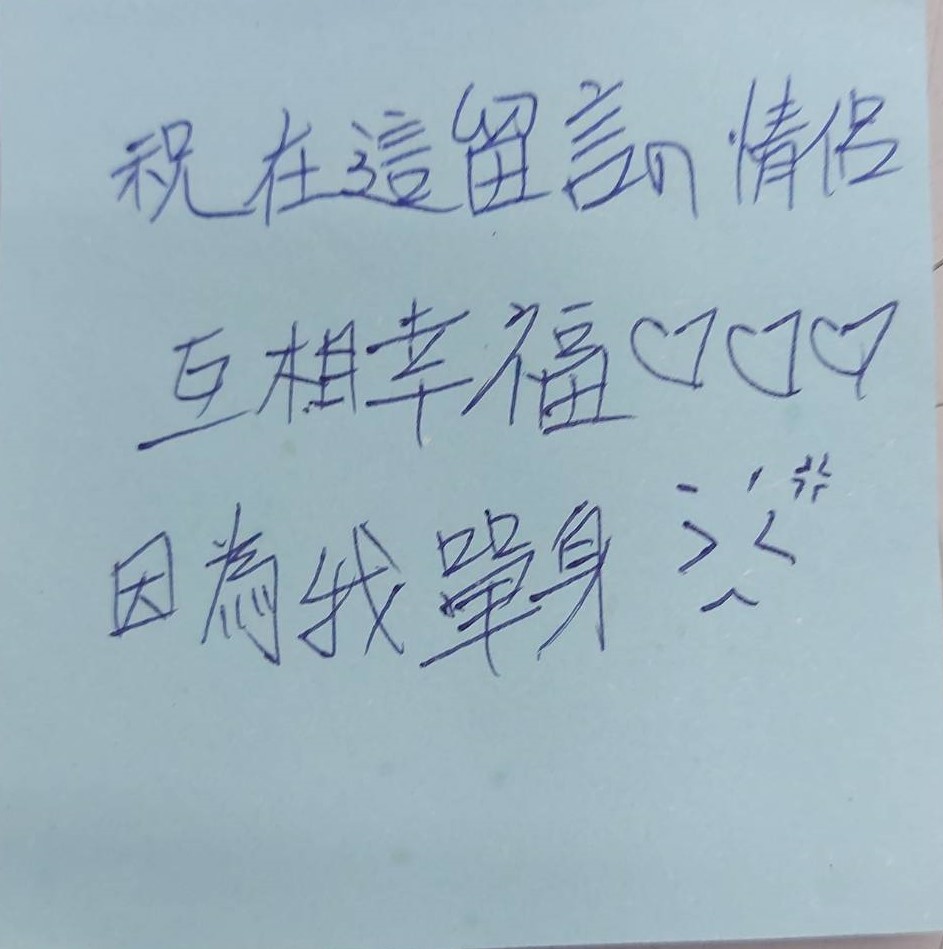 祝在這留言的情侶
互相幸福♡♡♡
因為我單身